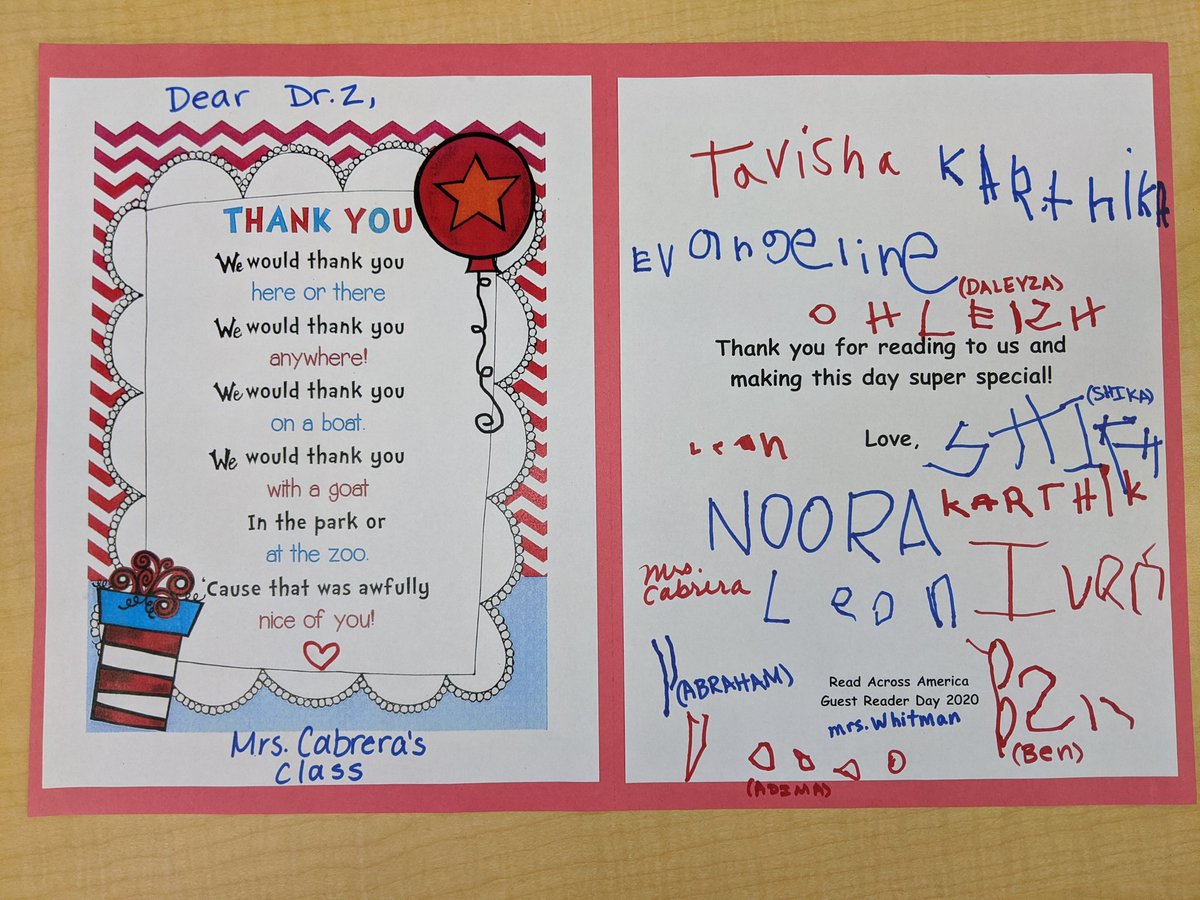 Dear Dr. Z,
THANK YOU
We would thank you
here or there
We would thank you
anywhere!
We would thank you
on a boat.
We would thank you
with a goat
In the park or
at the zoo.
'Cause that was awfully
nice of you!
Mrs. Cabrera's
class
Tavisha
KARTHIKA
Evangeline
(DALEYZA)
OHLEIZH
Thank you for reading to us and
making this day super special!
(SHIKA)
Love,
SHIKH
Lean
NOORA
KARTHIK
Mrs.
Cabrera
Leon
IVAN
(ABRAHAM)
Read Across America
Guest Reader Day 2020
mrs. Whitman
(Ben)
(ADEMA)